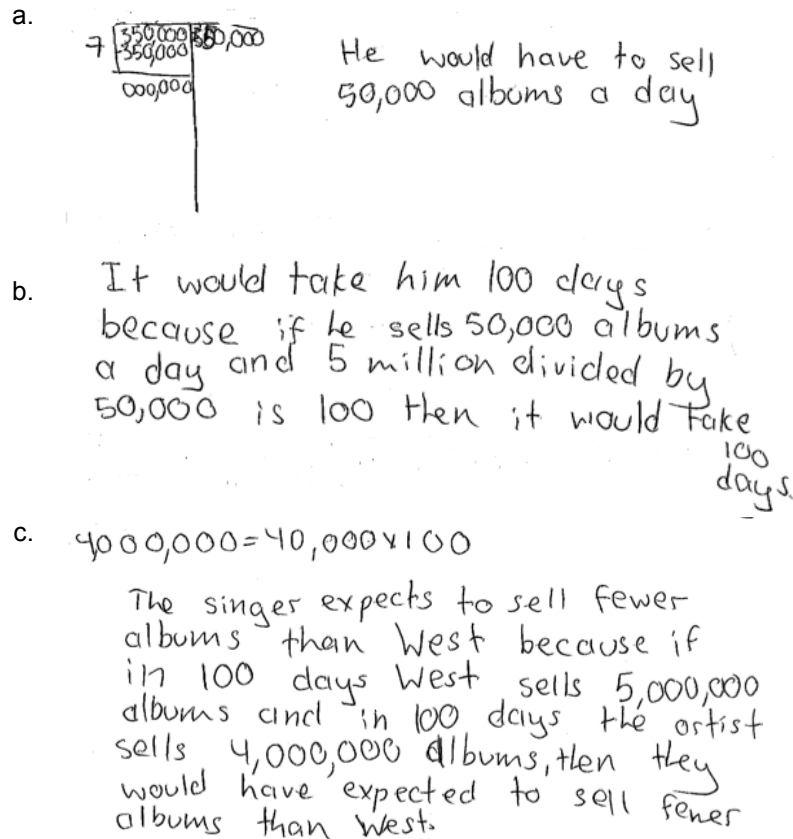 a.
7 350,000 50,000
-350,000
000,000
He would have to sell
50,000 albums a day
b.
It would take him 100 days
because if he sells 50,000 albums
a day and 5 million divided by
50,000 is 100 then it would take
100
days.
c.
4000,000=40,000x100
The singer expects to sell fewer
albums than West because if
in 100 days West sells 5,000,000
albums and in 100 days the artist
sells 4,000,000 albums, then they
would have expected to sell fewer
albums than West.